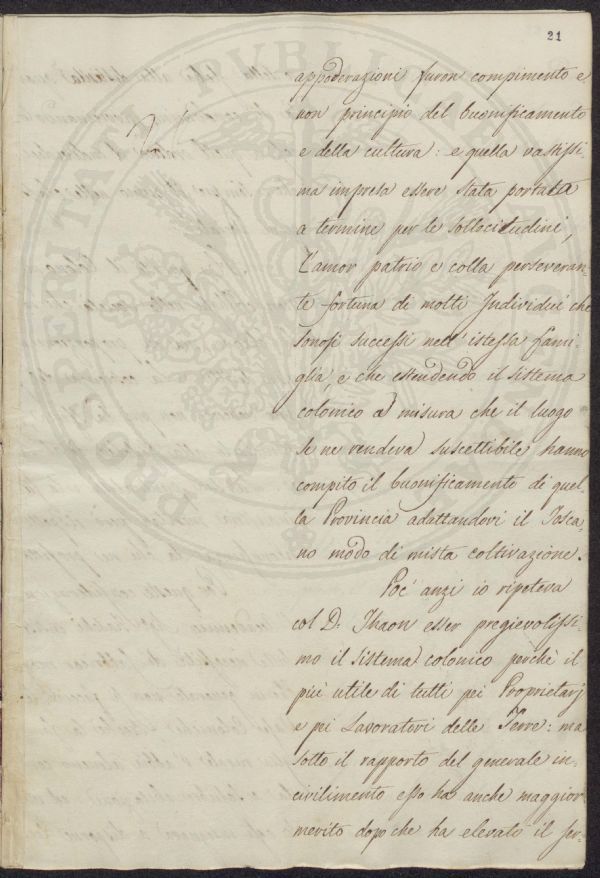 21
appoderazioni furon compimento e
non principio del buonificamento
e della cultura: e quella vastissi-
ma impresa essere stata portata
a termine per le sollecitudini,
L'amor patrio e colla perseveran-
te fortuna di molti Individui che
sonosi successi nell'istessa fami-
glia, e che estendendo il sistema
colonico a misura che il luogo
se ne rendeva suscettibile hanno
compito il buonificamento di quel-
la Provincia adattandovi il Tosca-
no modo di mista coltivazione.
Poc'anzi io ripeteva
col D. Thaon esser pregievolissi-
mo il sistema colonico perchè il
più utile di tutti pei Proprietarj
e pei Lavoratori delle Terre: ma
sotto il rapporto del generale in-
civilimento esso ha anche maggior
merito dopo che ha elevato il ser-
PROSPERITATI PUBLICAE